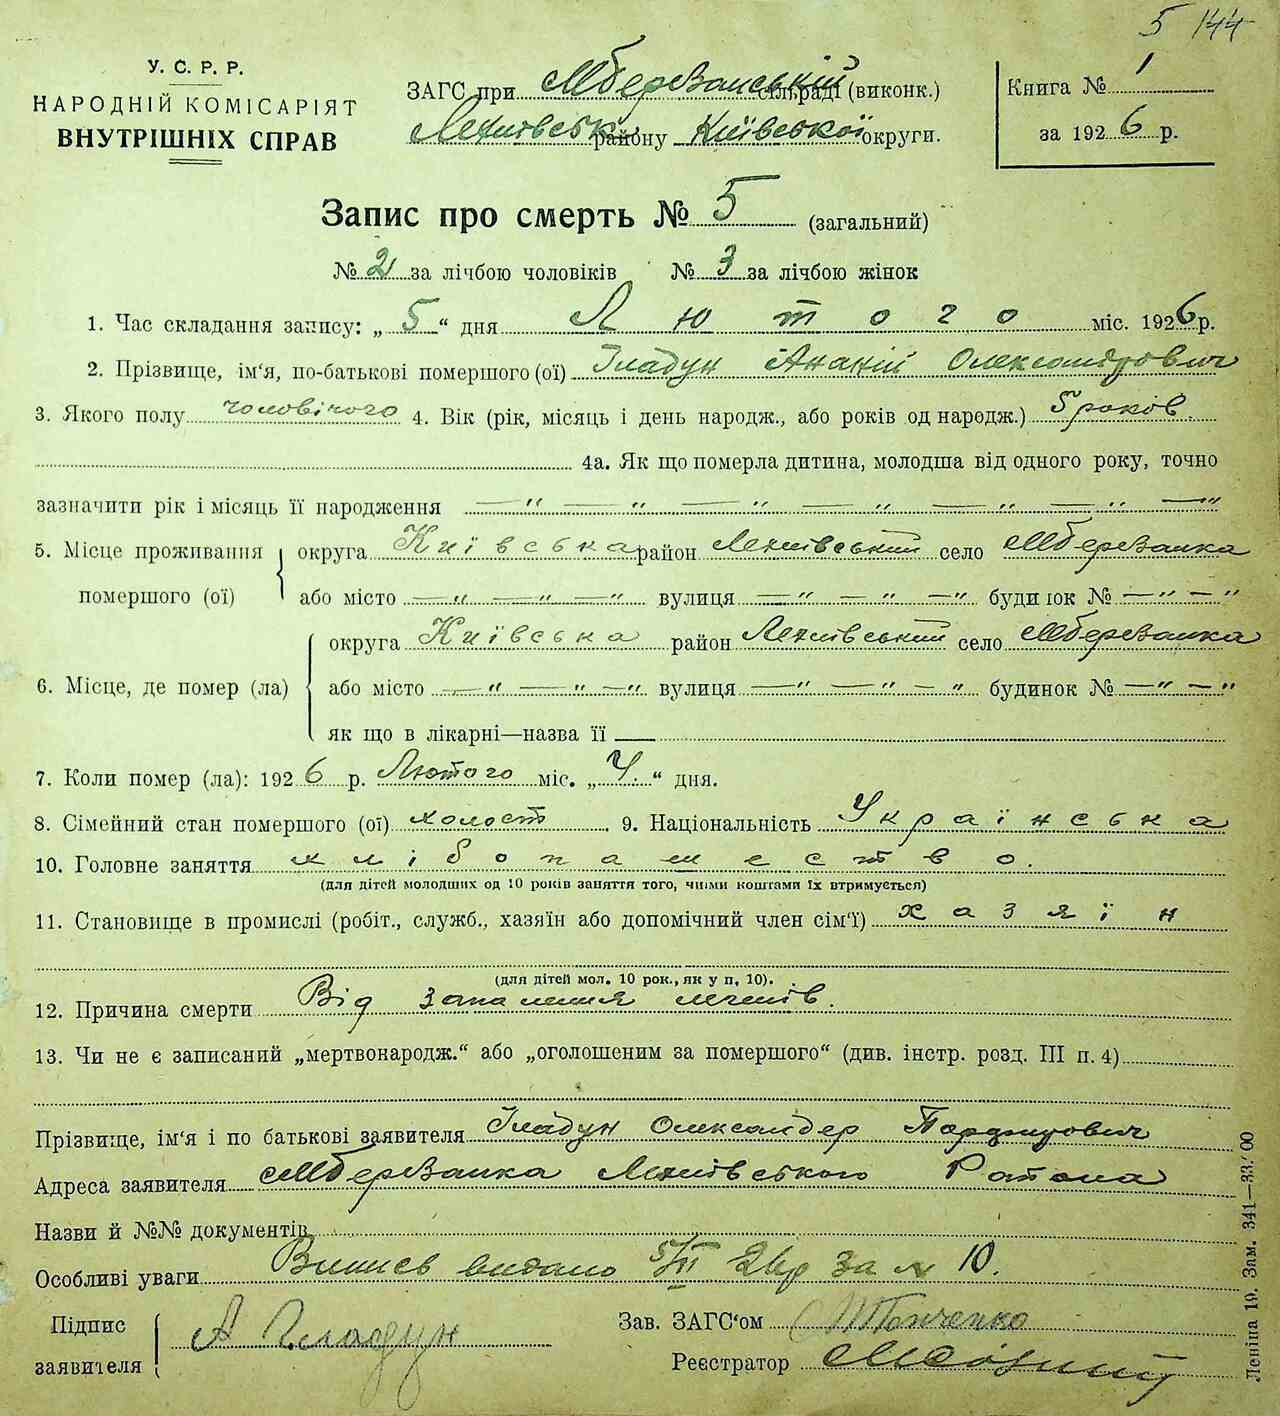 5 144
У. С. Р. Р.
НАРОДНІЙ КОМІСАРІЯТ
ВНУТРІШНІХ СПРАВ
ЗАГС при МБерезанській сільраді (виконк.)
району Київської округи.
Книга № 1
за 1926 р.
Запис про смерть № 5 (загальний)
№ 2 за лічбою чоловіків № 3 за лічбою жінок
1. Час складання запису: „5“ дня Лютого міс. 1926 р.
2. Прізвище, ім‘я, по-батькові помершого (ої) Гладун Ананій Олександрович
3. Якого полу чоловічого 4. Вік (рік, місяць і день народж., або років од народж.) 5 років.
4а. Як що померла дитина, молодша від одного року, точно
зазначити рік і місяць її народження — „ — „ — „ — „ — „ — „
5. Місце проживання помершого (ої)
округа Київська район село МБерезанка
або місто — „ — „ — „ вулиця — „ — „ — „ будинок № — „ — „
6. Місце, де помер (ла)
округа Київська район село МБерезанка
або місто — „ — „ — „ вулиця — „ — „ — „ будинок № — „ — „
як що в лікарні—назва її —
7. Коли помер (ла): 1926 р. Лютого міс. „4.“ дня.
8. Сімейний стан помершого (ої) холост 9. Національність Українська
10. Головне заняття хлібопашество.
(для дітей молодших од 10 років заняття того, чиїми коштами їх втримується)
11. Становище в промислі (робіт., служб., хазяїн або допомічний член сім‘ї) хазяїн
(для дітей мол. 10 рок., як у п. 10).
12. Причина смерти Від запалення легенів.
13. Чи не є записаний „мертвонародж.“ або „оголошеним за помершого“ (див. інстр. розд. III п. 4)
Прізвище, ім‘я і по батькові заявителя Гладун Олександер
Адреса заявителя МБерезанка
Назви й №№ документів
Особливі уваги Випись видано 5/II 26р за № 10.
Підпис заявителя А Гладун
Зав. ЗАГС‘ом
Реєстратор
Леніна 19. Зам. 341—33.